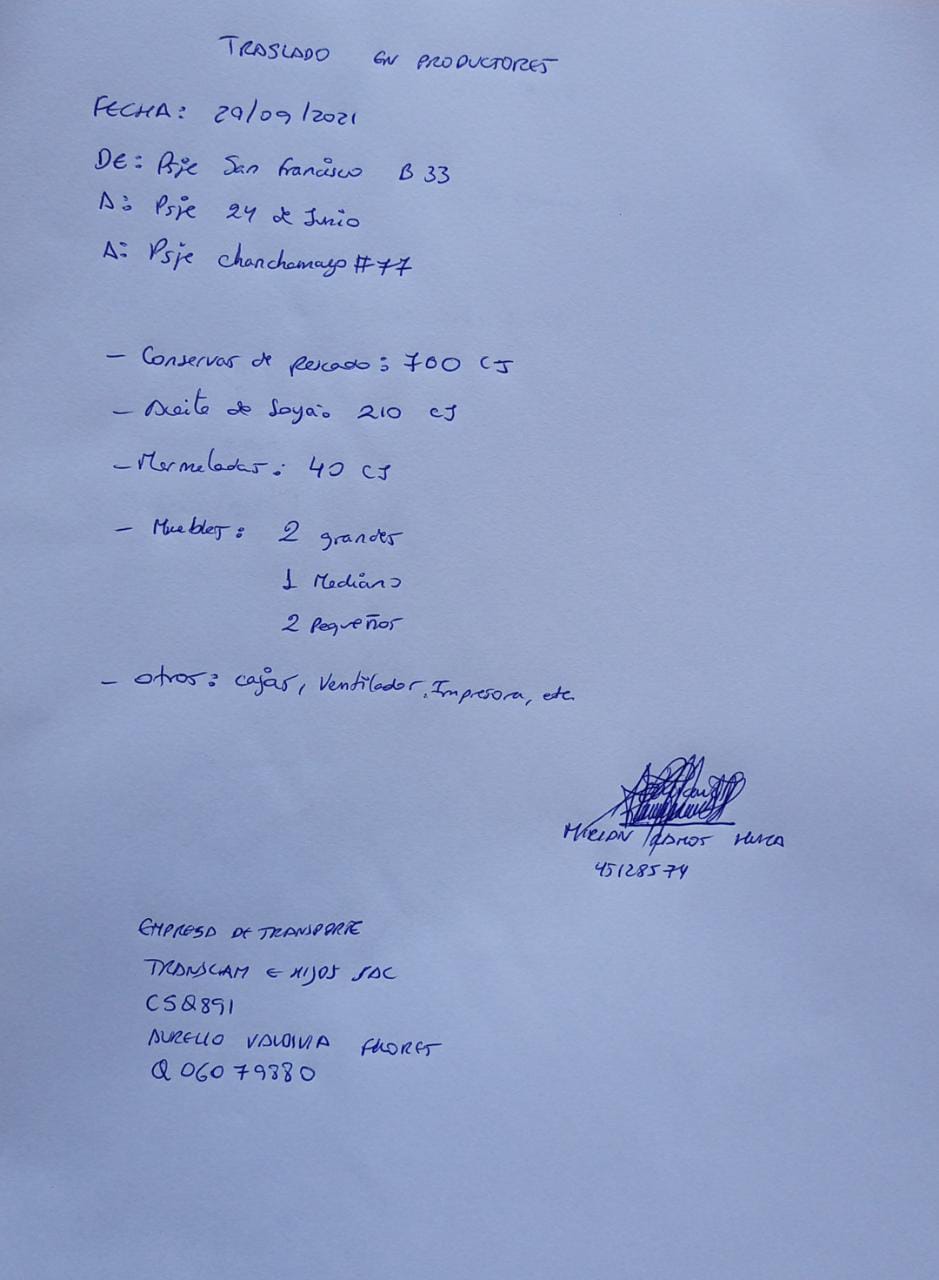 TRASLADO EN PRODUCTORES
FECHA: 29/09/2021
DE: Psje San Francisco B 33
A: Psje 24 de Junio
A: Psje Chanchamayo #77
- Conservas de Pescado: 700 CJ
- Aceite de Soya: 210 CJ
- Mermeladas: 40 CJ
- Muebles: 2 grandes
1 Mediano
2 Pequeños
- Otros: cajas, Ventilador, Impresora, etc.
MIRIAN RAMOS
45128574
EMPRESA DE TRANSPORTE
TRANSCAM E HIJOS SAC
C5Q891
AURELIO VALDIVIA FLORES
Q06079880